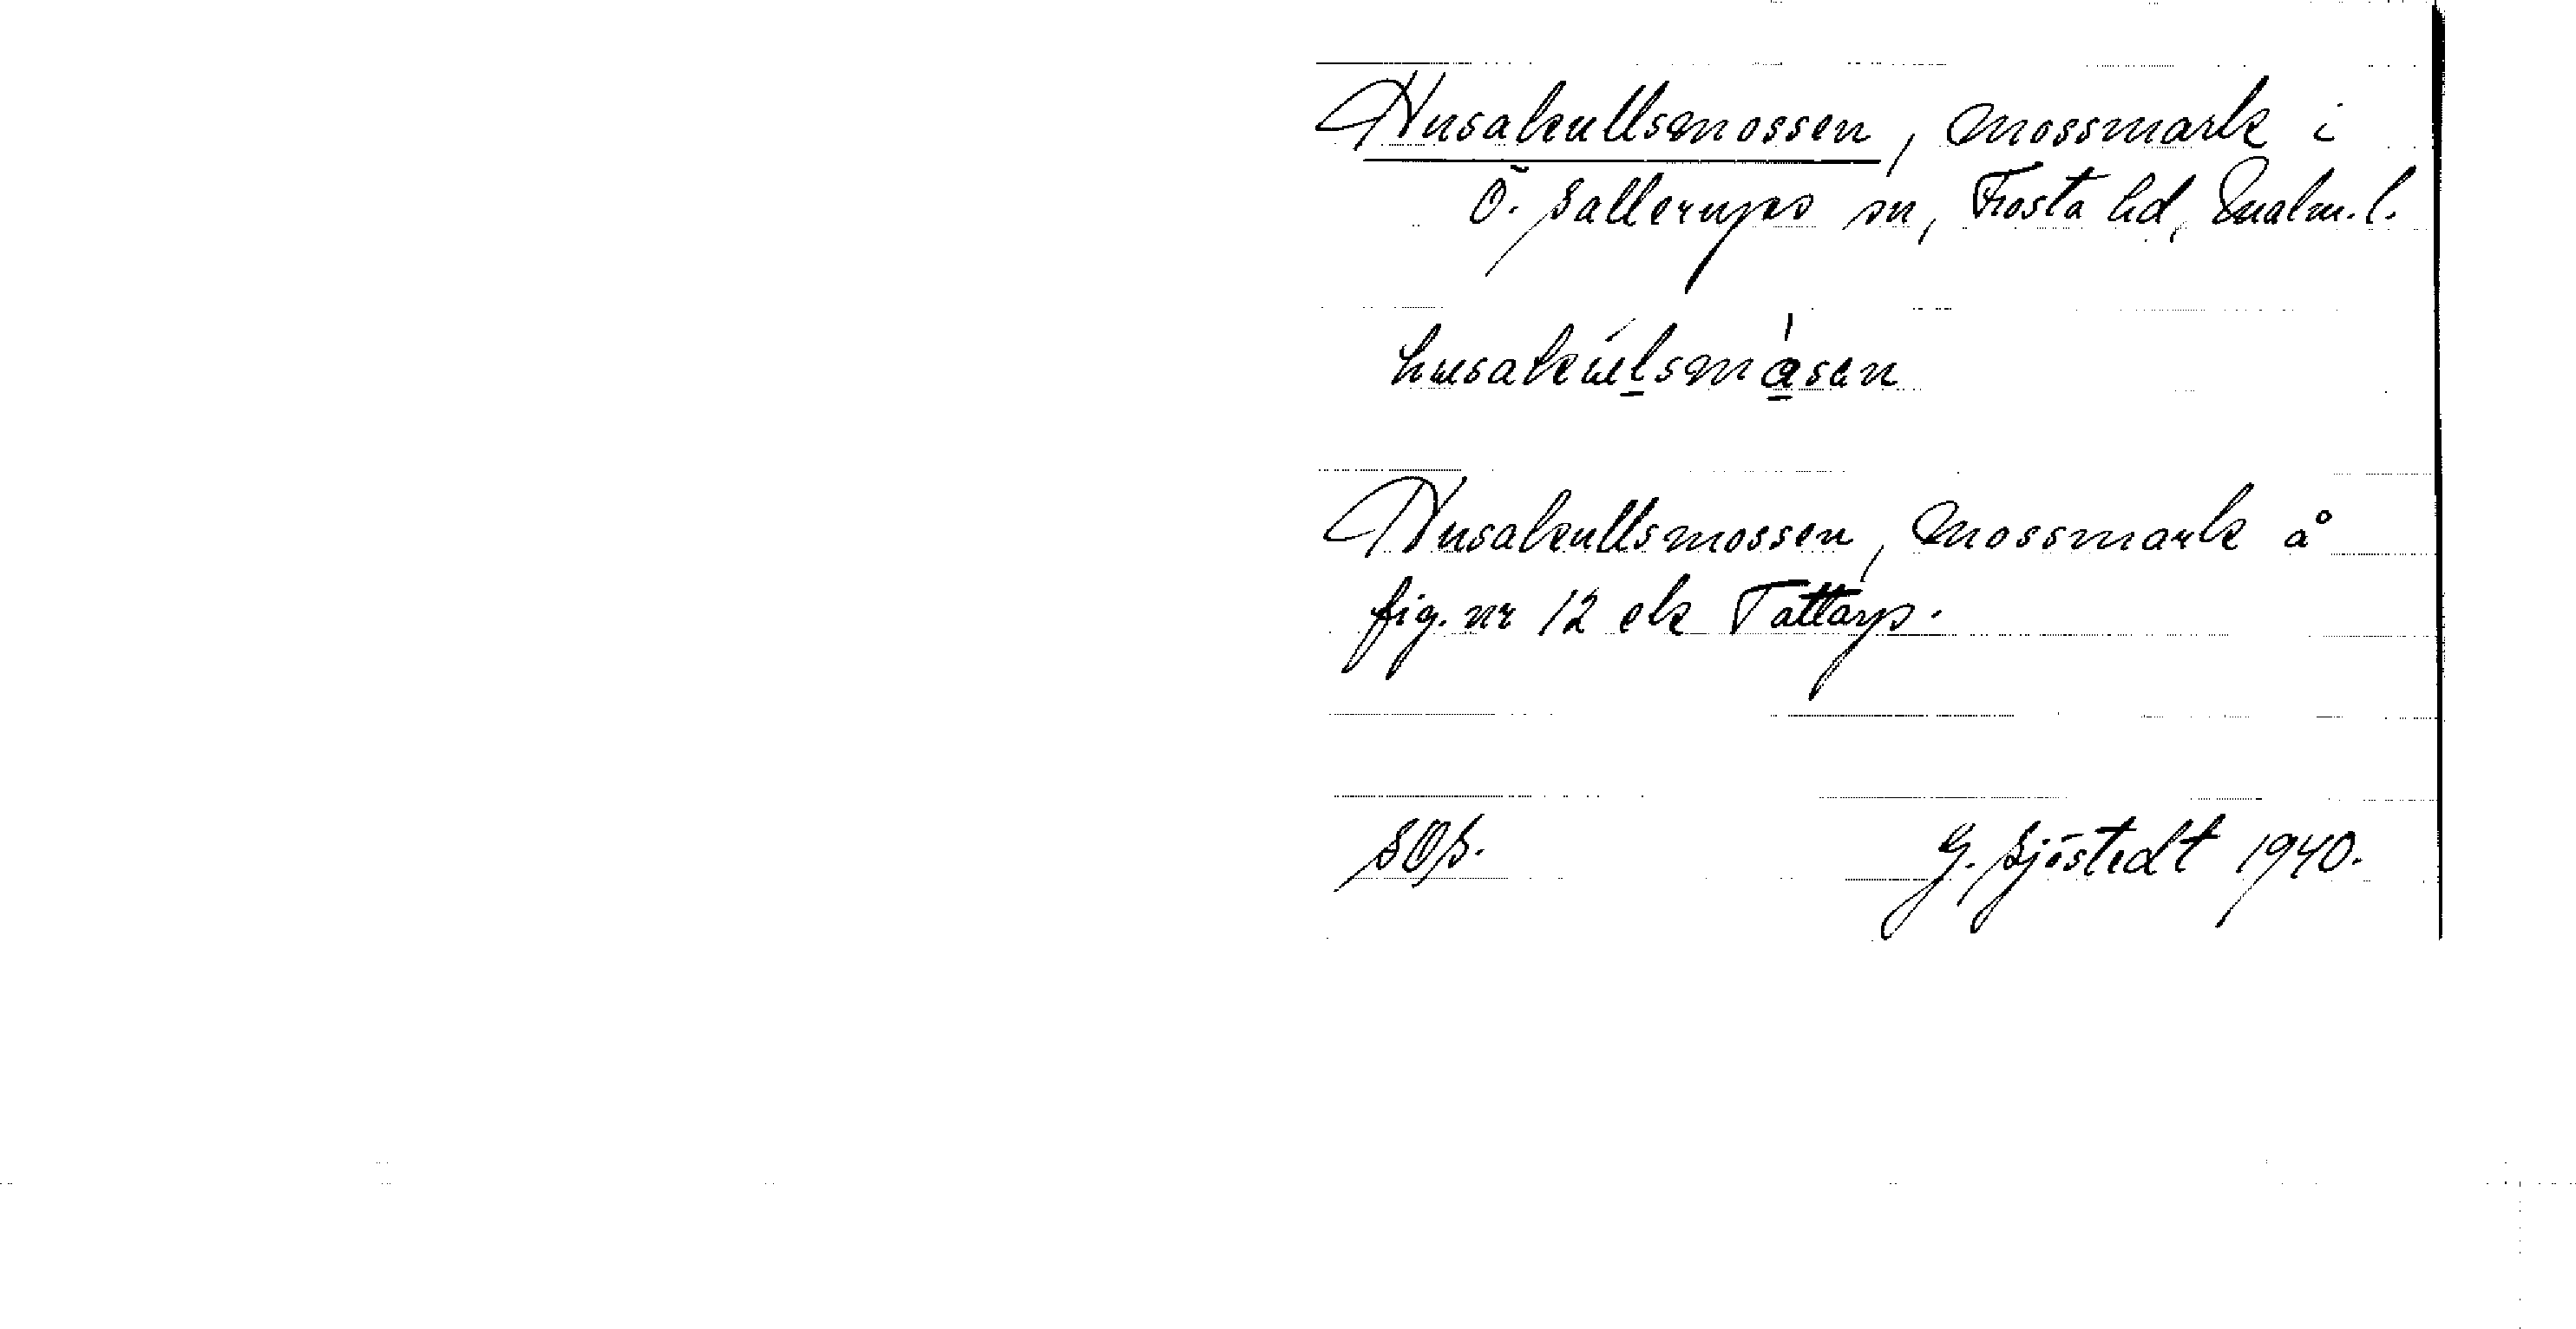 Husakullsmossen, Mossmark i
Ö. Sallerups sn, Frosta hd, Malm. l.
husakúlsmåsen
Husakullsmossen, Mossmark å
fig. nr 12 ek Tattarp.
SOS. G. Sjöstedt 1940.